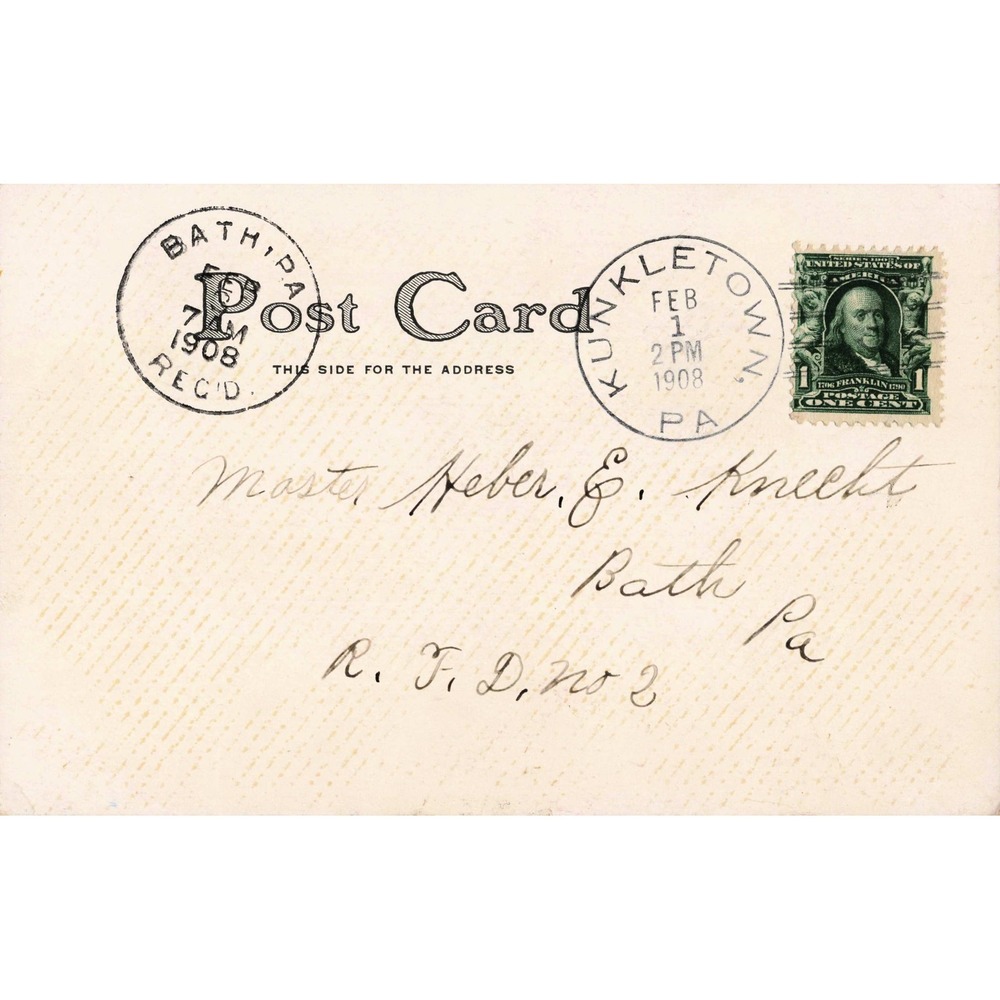 BATH, PA
FEB
7 AM
1908
REC'D.
Post Card
THIS SIDE FOR THE ADDRESS
KUNKLETOWN.
FEB
1
2 PM
1908
PA
SERIES 1902
UNITED STATES OF
AMERICA
1 1706 FRANKLIN 1790 1
POSTAGE
ONE CENT
Master Heber, E. Knecht
Bath
Pa
R. F. D, no 2